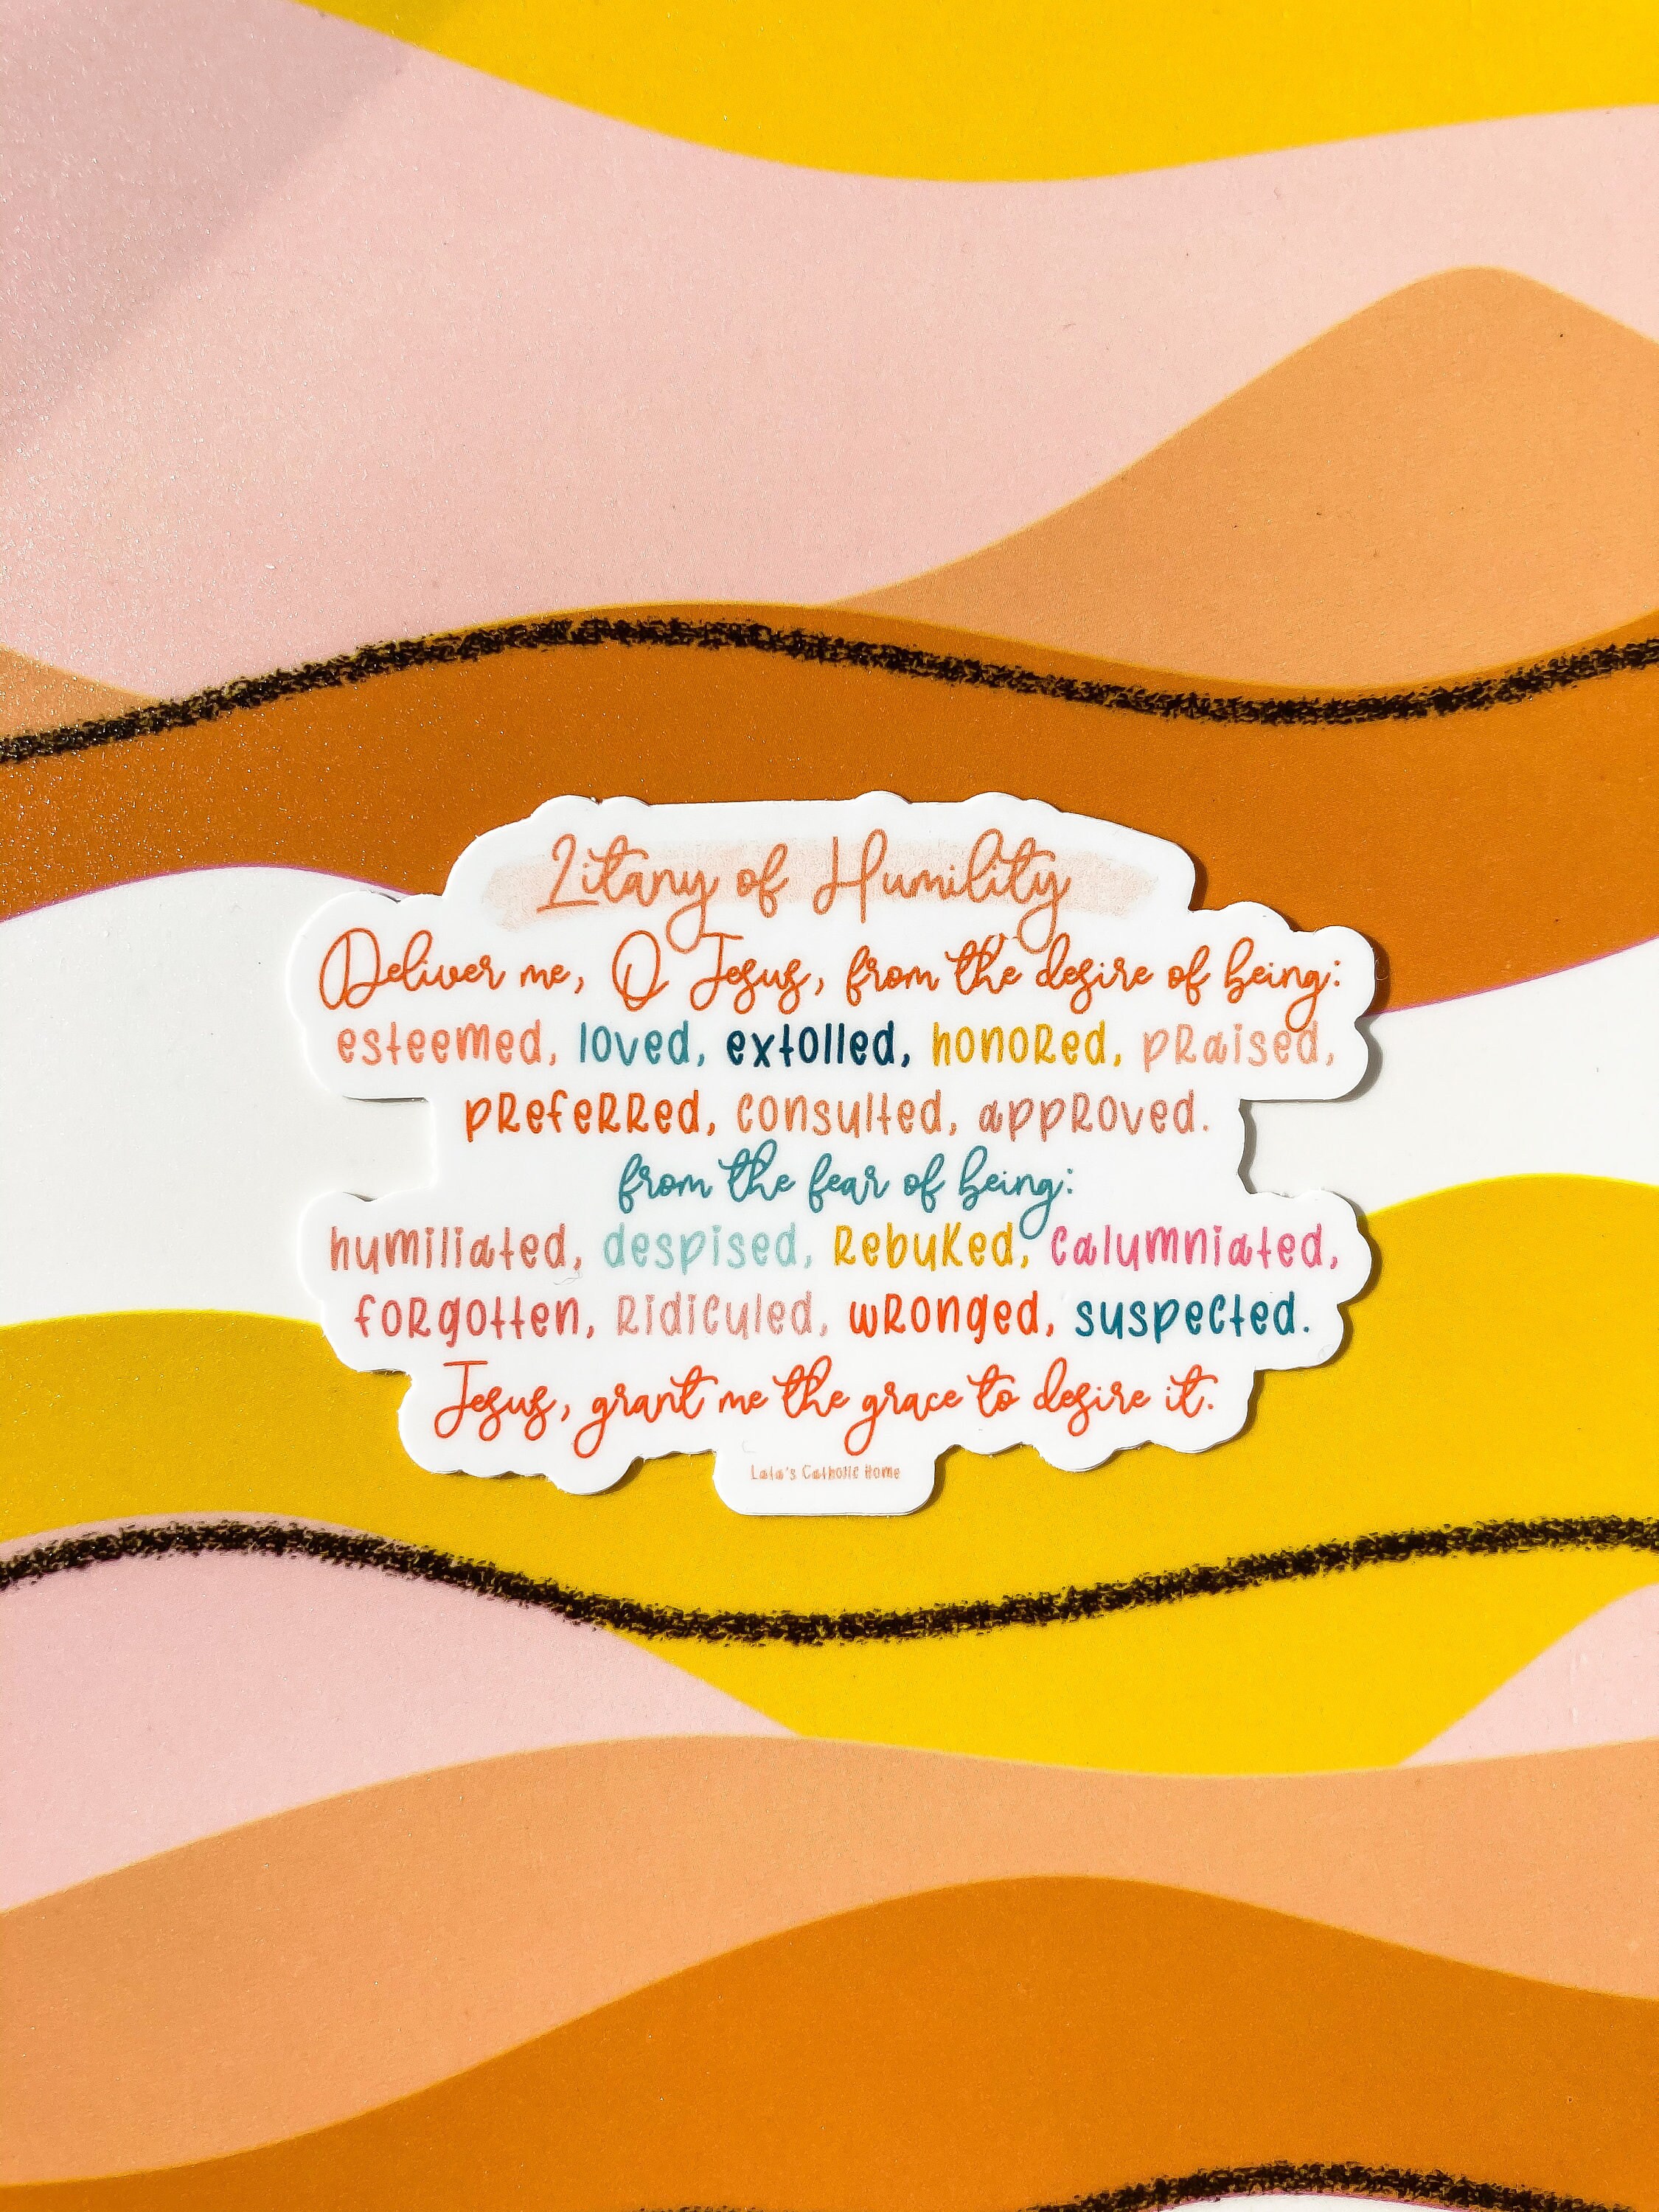 Litany of Humility
Deliver me, O Jesus, from the desire of being:
esteemed, loved, extolled, honored, praised,
preferred, consulted, approved.
from the fear of being:
humiliated, despised, rebuked, calumniated,
forgotten, ridiculed, wronged, suspected.
Jesus, grant me the grace to desire it.
Lala's Catholic Home